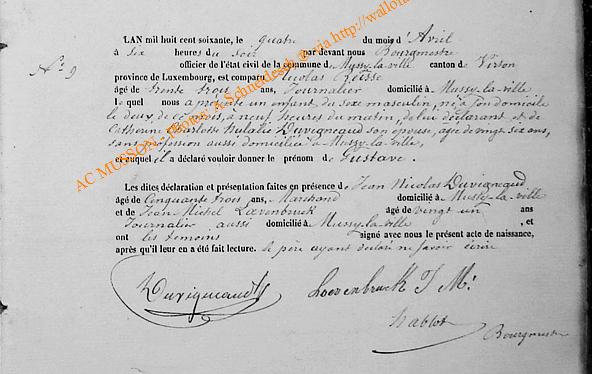 N° 9
L'AN mil huit cent soixante, le quatre du mois d'Avril
à six heures du soir par devant nous Bourgmestre
officier de l'état civil de la commune de Mussy-la-ville canton de Virton
province de Luxembourg, est comparu Nicolas
âgé de trente trois ans, Journalier domicilié à Mussy-la-ville
lequel nous a présenté un enfant du sexe masculin, né à son domicile
le deux de ce mois, à neuf heures du matin, de lui déclarant et de
Catherine Charlotte Natalie Duvigneaud son épouse, âgée de vingt six ans,
sans profession aussi domiciliée à Mussy-la-ville,
et auquel il a déclaré vouloir donner le prénom de Gustave.
Les dites déclaration et présentation faites en présence de Jean Nicolas Duvigneaud
âgé de Cinquante trois ans, Marchand domicilié à Mussy-la-ville
et de Jean Michel Loevenbruck âgé de vingt un ans
Journalier aussi domicilié à Mussy-la-ville, et
ont les témoins signé avec nous le présent acte de naissance,
après qu'il leur en a été fait lecture. le père ayant déclaré ne savoir écrire
Duvigneaud
Loevenbruck J M.
Hablot
Bourgmestre
AC MUSSON - Photos A.Schneidesch © via http://wallon